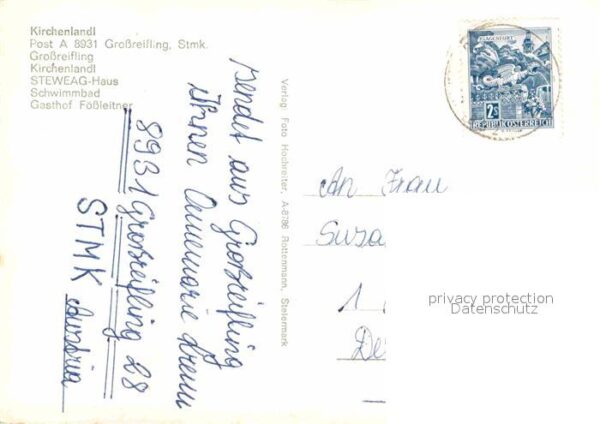 Kirchenlandl
Post A 8931 Großreifling, Stmk.
Großreifling
Kirchenlandl
STEWEAG-Haus
Schwimmbad
Gasthof Fößleitner
sendet aus Großreifling
Ihnen Annemarie
8931 Großreifling 28
STMK
Austria
Verlag: Foto Hochreiter, A-8786 Rottenmann, Steiermark
KLAGENFURT
2S
REPUBLIK ÖSTERREICH
An Frau
Susa
1
De
privacy protection
Datenschutz